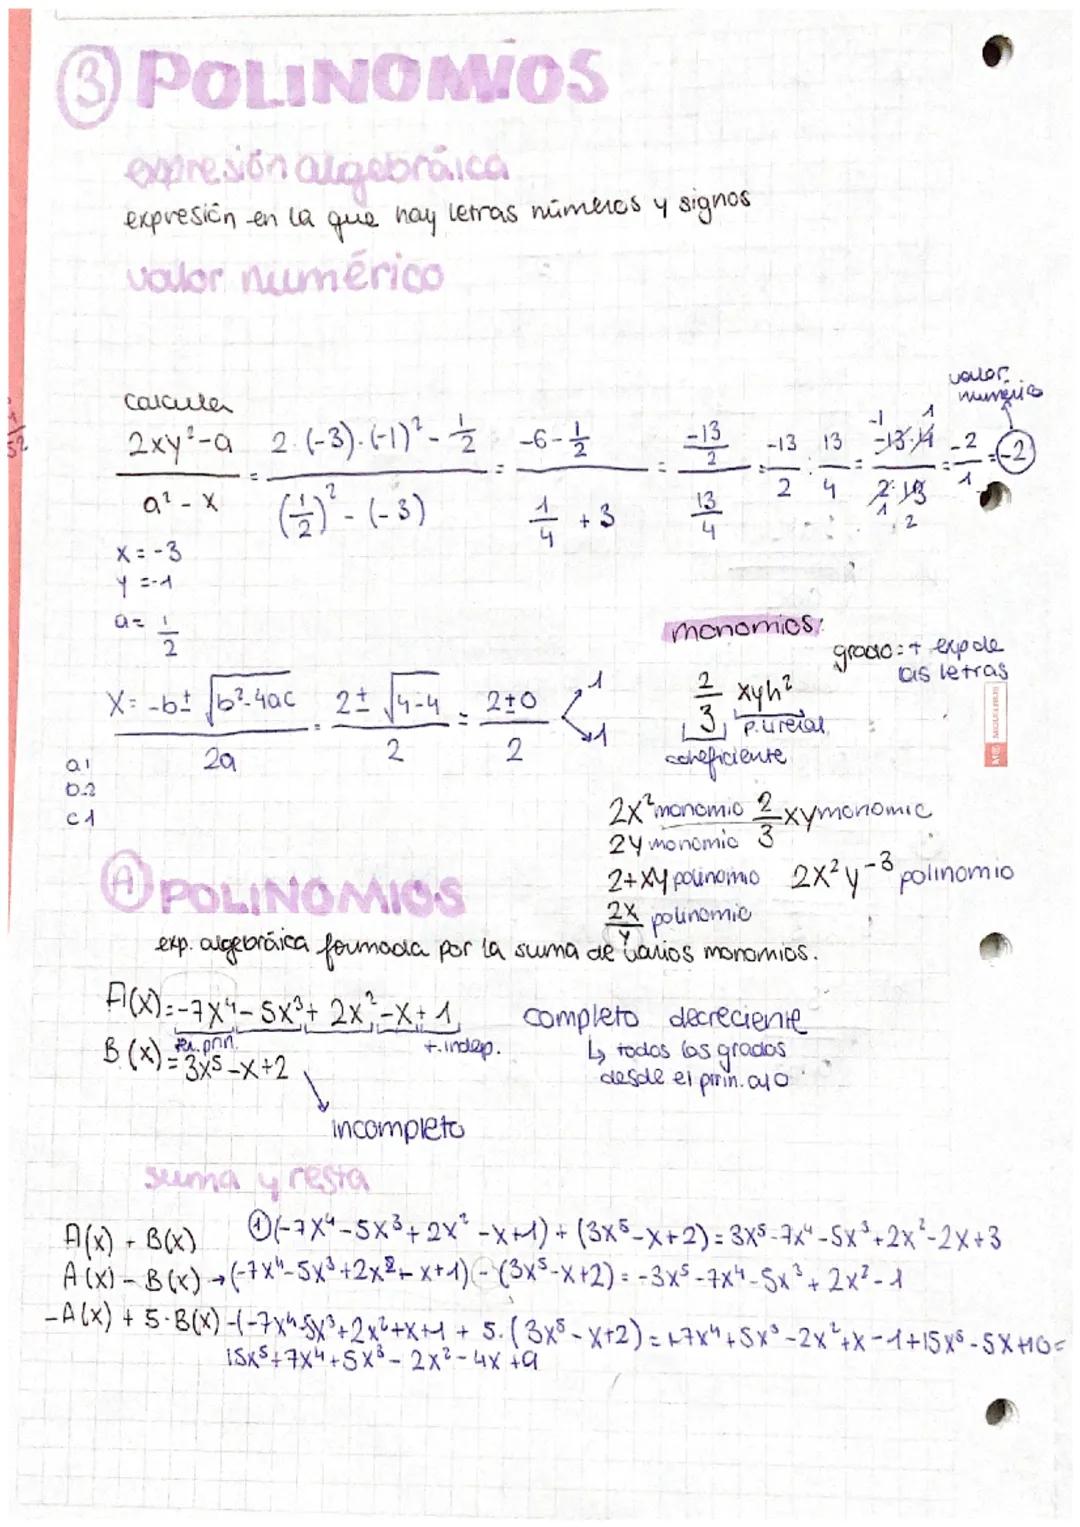 ③ POLINOMIOS
expresión algebráica
expresión en la que hay letras números y signos
valor numérico
calcular
valor numérico
(2xy²-a)/(a²-x) = (2·(-3)·(-1)²-1/2)/((1/2)²-(-3)) = (-6-1/2)/(1/4+3) = (-13/2)/(13/4) = -13/2 : 13/4 = (-13·4)/(2·13) = -2/1 = -2
x=-3
y=-1
a=1/2
monomios:
grado: + exp de las letras
2/3 xyh²
p. literal
coheficiente
X= (-b±√(b²-4ac))/2a = (2±√(4-4))/2 = (2±0)/2 1 1
a.1
b.2
c1
2x² monomio 2/3 xy monomio
2y monomio
2+xy polinomio 2x²y⁻³ polinomio
2x/y polinomio
Ⓐ POLINOMIOS
exp. algebráica formada por la suma de varios monomios.
A(x)=-7x⁴-5x³+2x²-x+1 completo decreciente
prin. t.indep. ↳ todos los grados
B(x)=3x⁵-x+2 desde el prin. al 0
incompleto
suma y resta
A(x)+B(x) ①(-7x⁴-5x³+2x²-x+1)+(3x⁵-x+2)=3x⁵-7x⁴-5x³+2x²-2x+3
A(x)-B(x)→(-7x⁴-5x³+2x²-x+1)-(3x⁵-x+2)=-3x⁵-7x⁴-5x³+2x²-1
-A(x)+5·B(x) -(-7x⁴-5x³+2x²+x+1+5·(3x⁵-x+2)=+7x⁴+5x³-2x²+x-1+15x⁵-5x+10=
15x⁵+7x⁴+5x³-2x²-4x+9